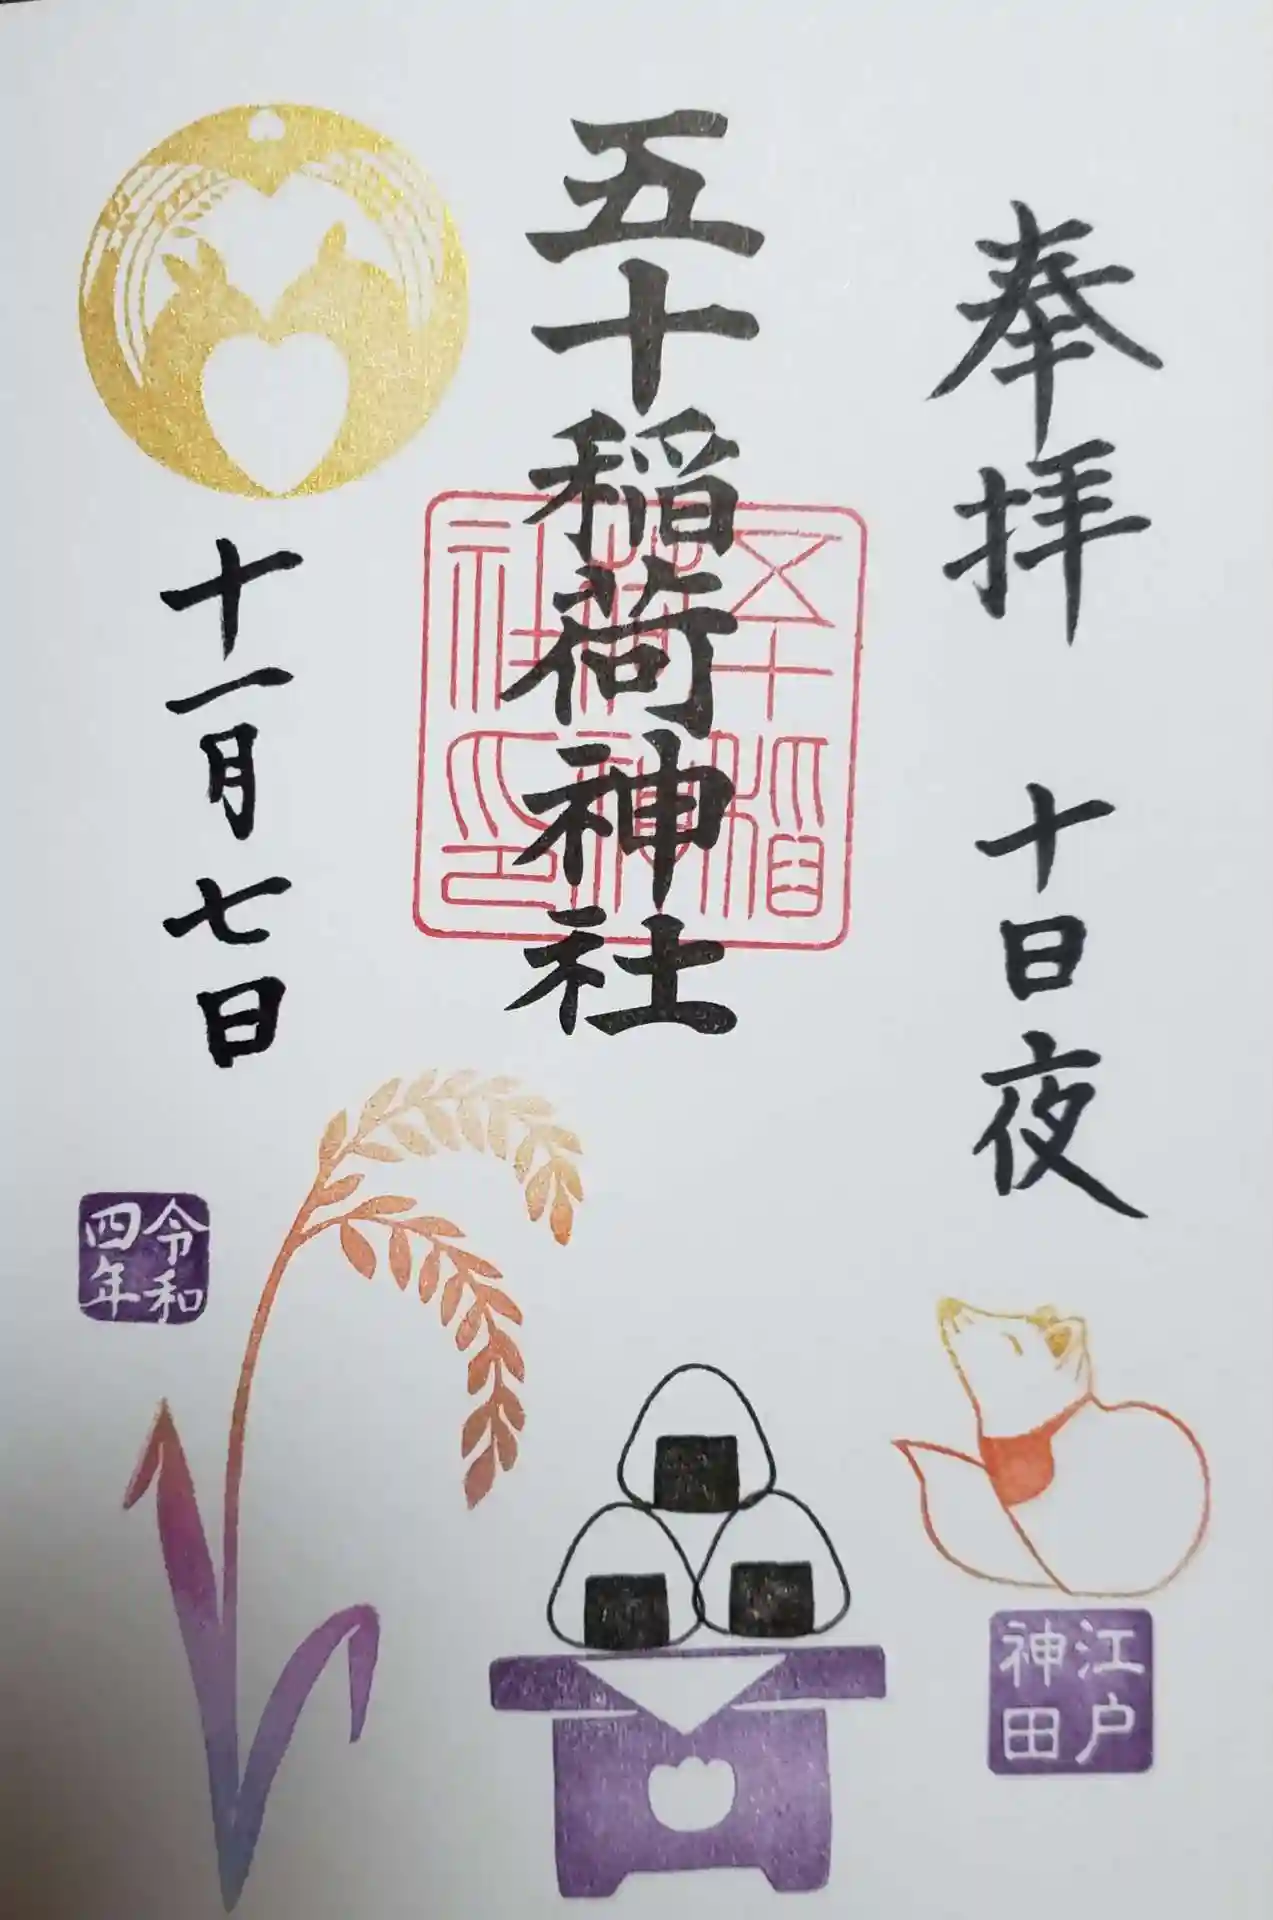 奉拝 十日夜
江戸
神田
五十稲荷神社
五十稲
荷神
社印
十一月七日
令和
四年